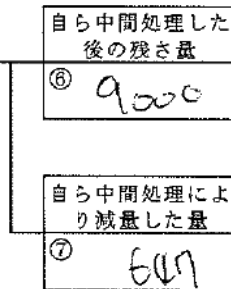 自ら中間処理した
後の残さ量
⑥ 9000
自ら中間処理によ
り減量した量
⑦